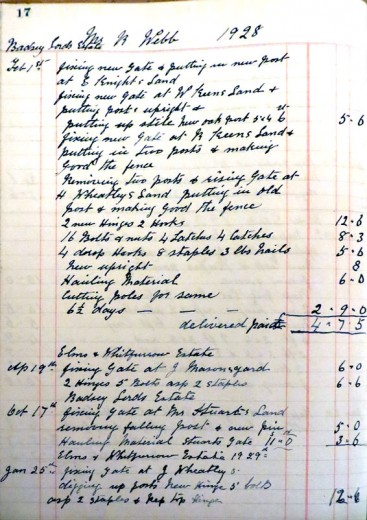 17
Mr R Webb 1928
Badsey Lords Estate
Feb 1st fixing new Gate & putting in new post
at E Knights Land
fixing new Gate at W Keens Land &
putting posts upright &
putting up stile new oak post 5 x 4 6 5-6
fixing new Gate at R Keens Land &
putting in two posts & making
Good the fence
Removing two posts & fixing Gate at
H Wheatleys Land putting in old
Post & making Good the fence
2 new Hinges 2 Hooks 12-6
16 Bolts & nuts 4 Latches 4 Catches 8-3
4 drop Hooks 8 staples 3 lbs nails 5-6
New upright 8
Hauling Material 6-0
Cutting Poles for same
6½ days — — — 2-9-0
delivered 4-7-5
Elms & Whitfurrow Estate
Ap 19th fixing Gate at J Masons yard 6-0
2 Hinges 5 Bolts 2 staples 6-6
Badsey Lords Estate
Oct 17th fixing Gate at Mrs Stuarts Land
removing falling Post & new 5-0
Hauling Material Stuarts Gate 11-0 3-6
Elms & Whitfurrow Estate 1929
Jan 25th fixing Gate at J Wheatleys
digging up posts New Hinge 5 bolts
2 staples & 12-6